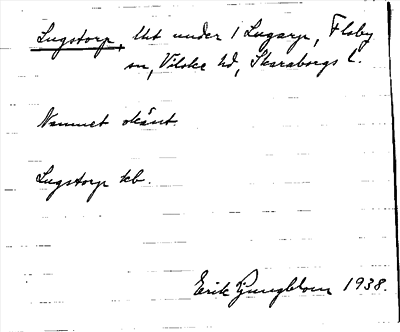 Lugstorp, lht under 1 Lugarp, Floby
sn, Vilske hd, Skaraborgs l.
Namnet okänt.
Lugstorp kb.
Erik Ljungblom 1938.